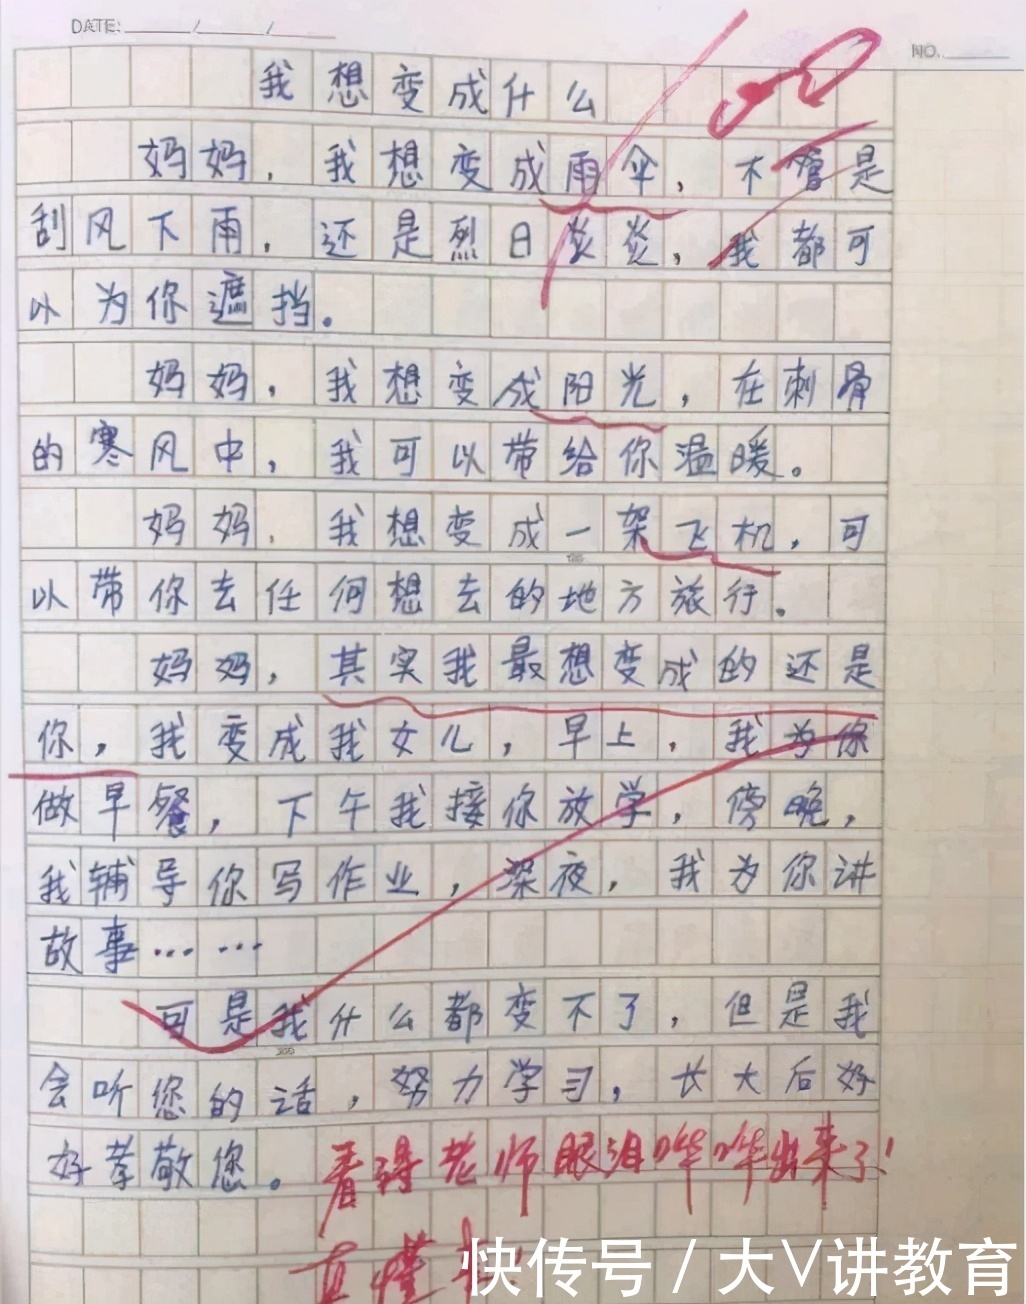 DATE: ____/____/____
NO.______
我想变成什么
100
妈妈，我想变成雨伞，不管是
刮风下雨，还是烈日炎炎，我都可
以为你遮挡。
妈妈，我想变成阳光，在刺骨
的寒风中，我可以带给你温暖。
妈妈，我想变成一架飞机，可
以带你去任何想去的地方旅行。
妈妈，其实我最想变成的还是
你，我变成我女儿，早上，我为你
做早餐，下午我接你放学，傍晚，
我辅导你写作业，深夜，我为你讲
故事……
可是我什么都变不了，但是我
会听您的话，努力学习，长大后好
好孝敬您。看得老师眼泪哗哗出来了！
真懂事！
快传号／大V讲教育